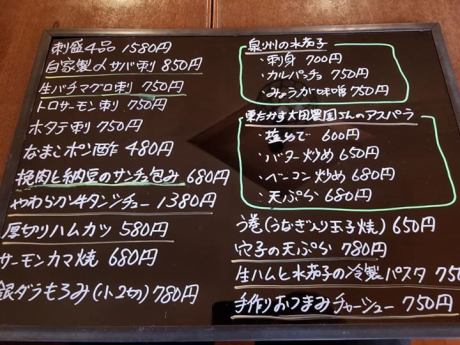 刺盛4品 1580円
自家製〆サバ刺 850円
生バチマグロ刺 750円
トロサーモン刺 750円
ホタテ刺 750円
なまこポン酢 480円
挽肉と納豆のサンチュ包み 680円
やわらか牛タンシチュー 1380円
厚切りハムカツ 580円
サーモンカマ焼 680円
銀ダラもろみ(小2切) 780円
泉州の水茄子
・刺身 700円
・カルパッチョ 750円
・みょうが味噌 750円
東たかす大田農園さんのアスパラ
・茹で 600円
・バター炒め 650円
・ベーコン炒め 680円
・天ぷら 680円
う巻(うなぎ入り玉子焼) 650円
穴子の天ぷら 780円
生ハムと水茄子の冷製パスタ 750
手作りおつまみチャーシュー 750円